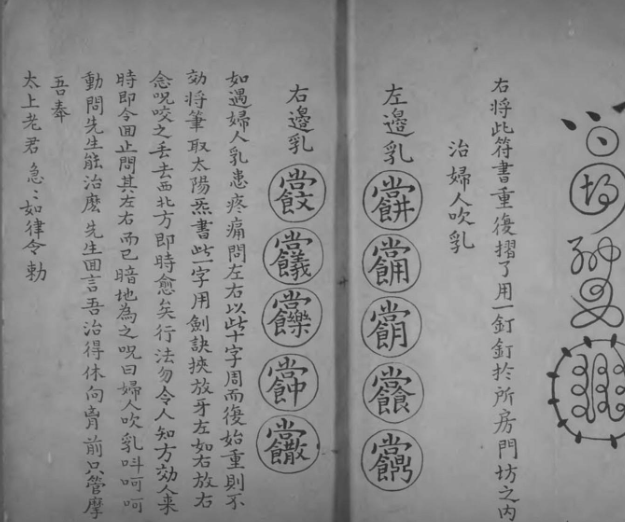 右將此符書重復摺了用一釘釘扵所房門坊之内
治婦人吹乳
左邉乳
右邉乳
如遇婦人乳患疼痛問左右以此十字周而復始重則不
効将筆取太陽炁書此一字用劍訣挾放牙左如右放右
念呪咬之丢去西北方即時愈矣行法勿令人知方効人来
時即令囬止問其左右而已暗地為之呪曰婦人吹乳呌呵呵
動問先生能治麽先生囬言吾治得休向胷前只管摩
吾奉
太上老君急〻如律令勅